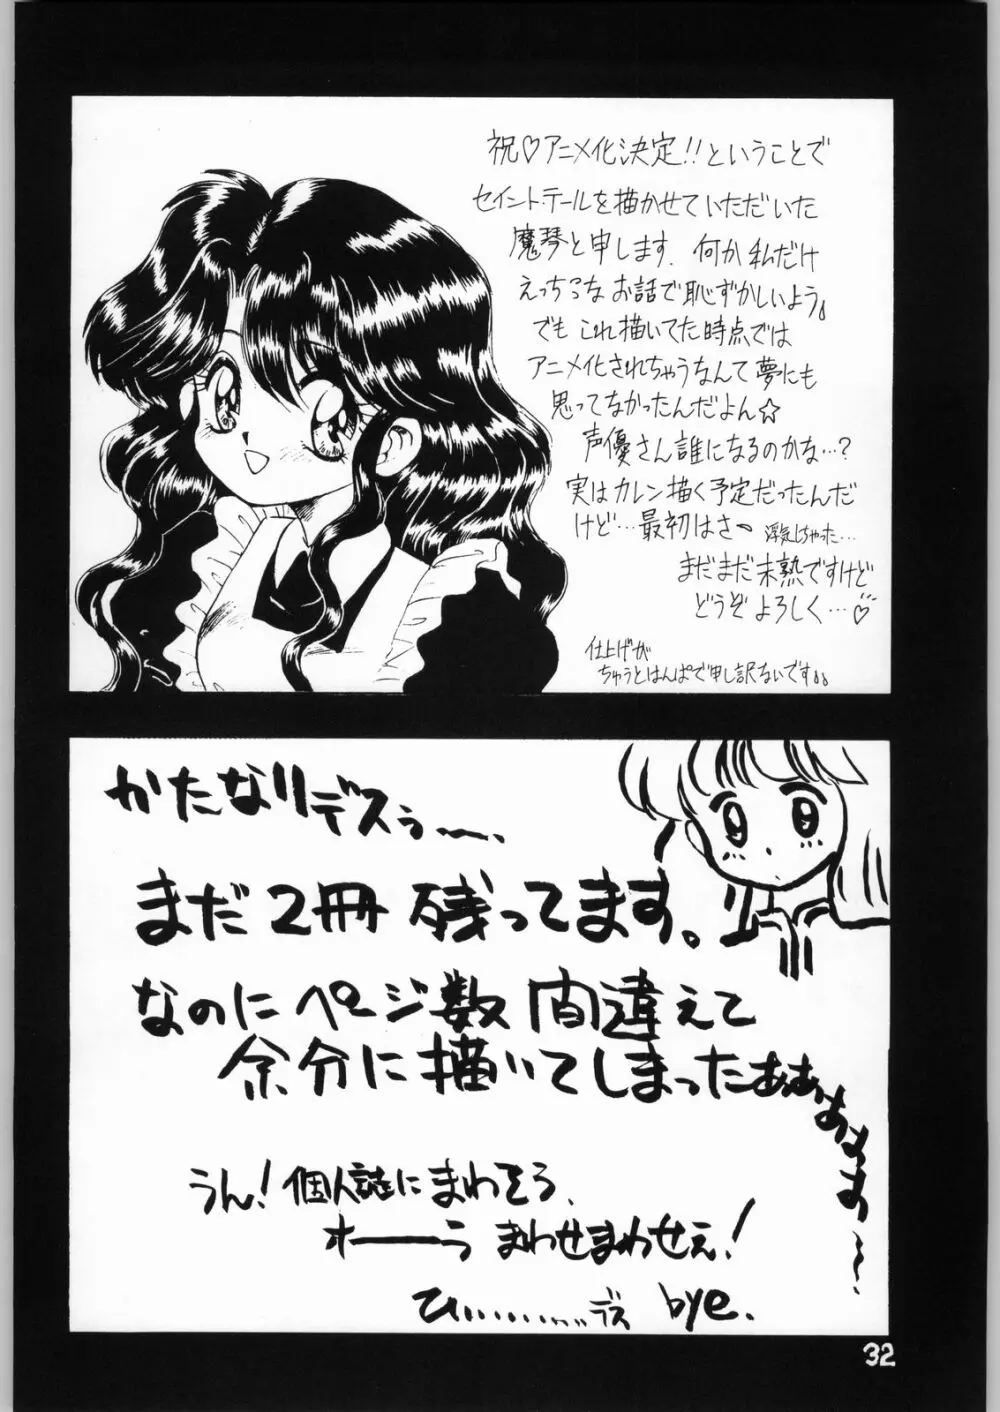 祝♡アニメ化決定!!ということで
セイント・テールを描かせていただいた
魔琴と申します。何か私だけ
えっちっな お話で恥ずかしいよう。
でも これ描いてた時点では
アニメ化されちゃうなんて夢にも
思ってなかったんだよん☆
声優さん誰になるのかな…?
実はカレン描く予定だったんだ
けど…最初はさー 浮気しちゃった…
まだまだ未熟ですけど
どうぞよろしく…♡
仕上げが
ちゅうとはんぱで申し訳ないです。
かたなりデスぅ〜、
まだ2冊残ってます。
なのにページ数間違えて
余分に描いてしまったぁぁぁぁぁぁ〜
うん!個人誌にまわそう、
オーーうまわせまわせぇ!
ひ…………デス bye.
32